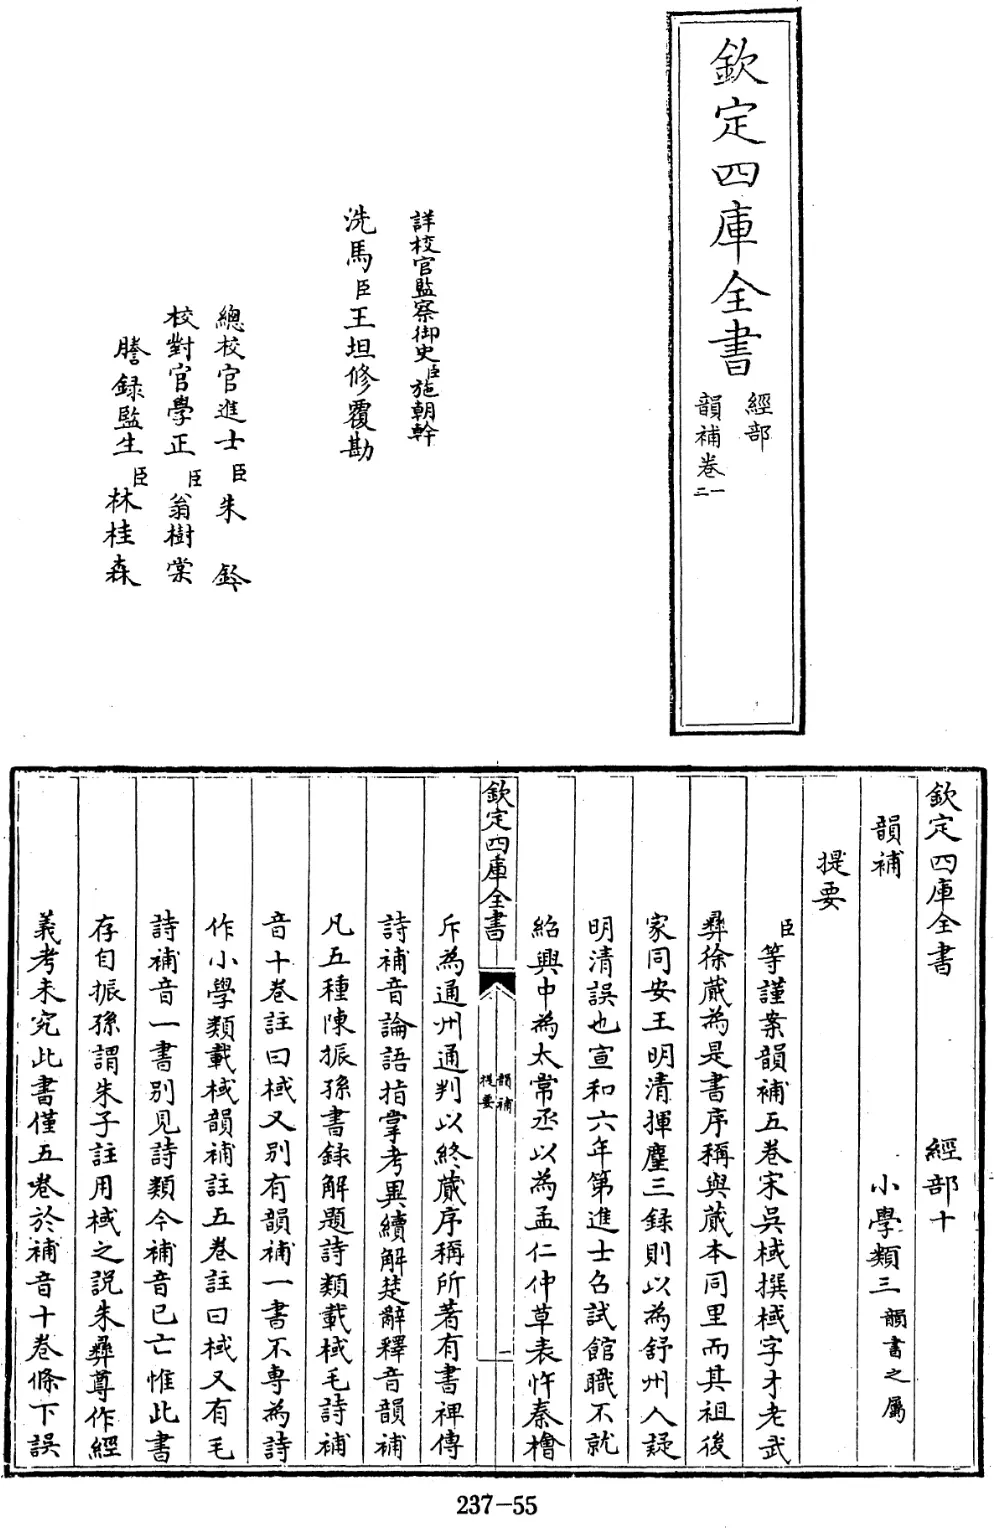 欽定四庫全書
經部
韻補卷一
二
詳校官監察御史臣施朝幹
洗馬臣王坦修覆勘
總校官進士臣朱鈐
校對官學正臣翁樹棠
謄録監生臣林桂森
欽定四庫全書 經部十
韻補 小學類三韻書之屬
提要
臣等謹案韻補五卷宋吳棫撰棫字才老武
彝徐蕆為是書序稱與蕆本同里而其祖後
家同安王明清揮麈三録則以為舒州人疑
明清誤也宣和六年第進士召試館職不就
紹興中為太常丞以為孟仁仲草表忤秦檜
欽定四庫全書 韻補提要 一
斥為通州通判以終蕆序稱所著有書裨傳
詩補音論語指掌考異續解楚辭釋音韻補
凡五種陳振孫書録解題詩類載棫毛詩補
音十卷註曰棫又别有韻補一書不専為詩
作小學類載棫韻補註五卷註曰棫又有毛
詩補音一書别見詩類今補音已亡惟此書
存自振孫謂朱子註用棫之説朱彝尊作經
義考未究此書僅五卷於補音十卷條下誤
237-55